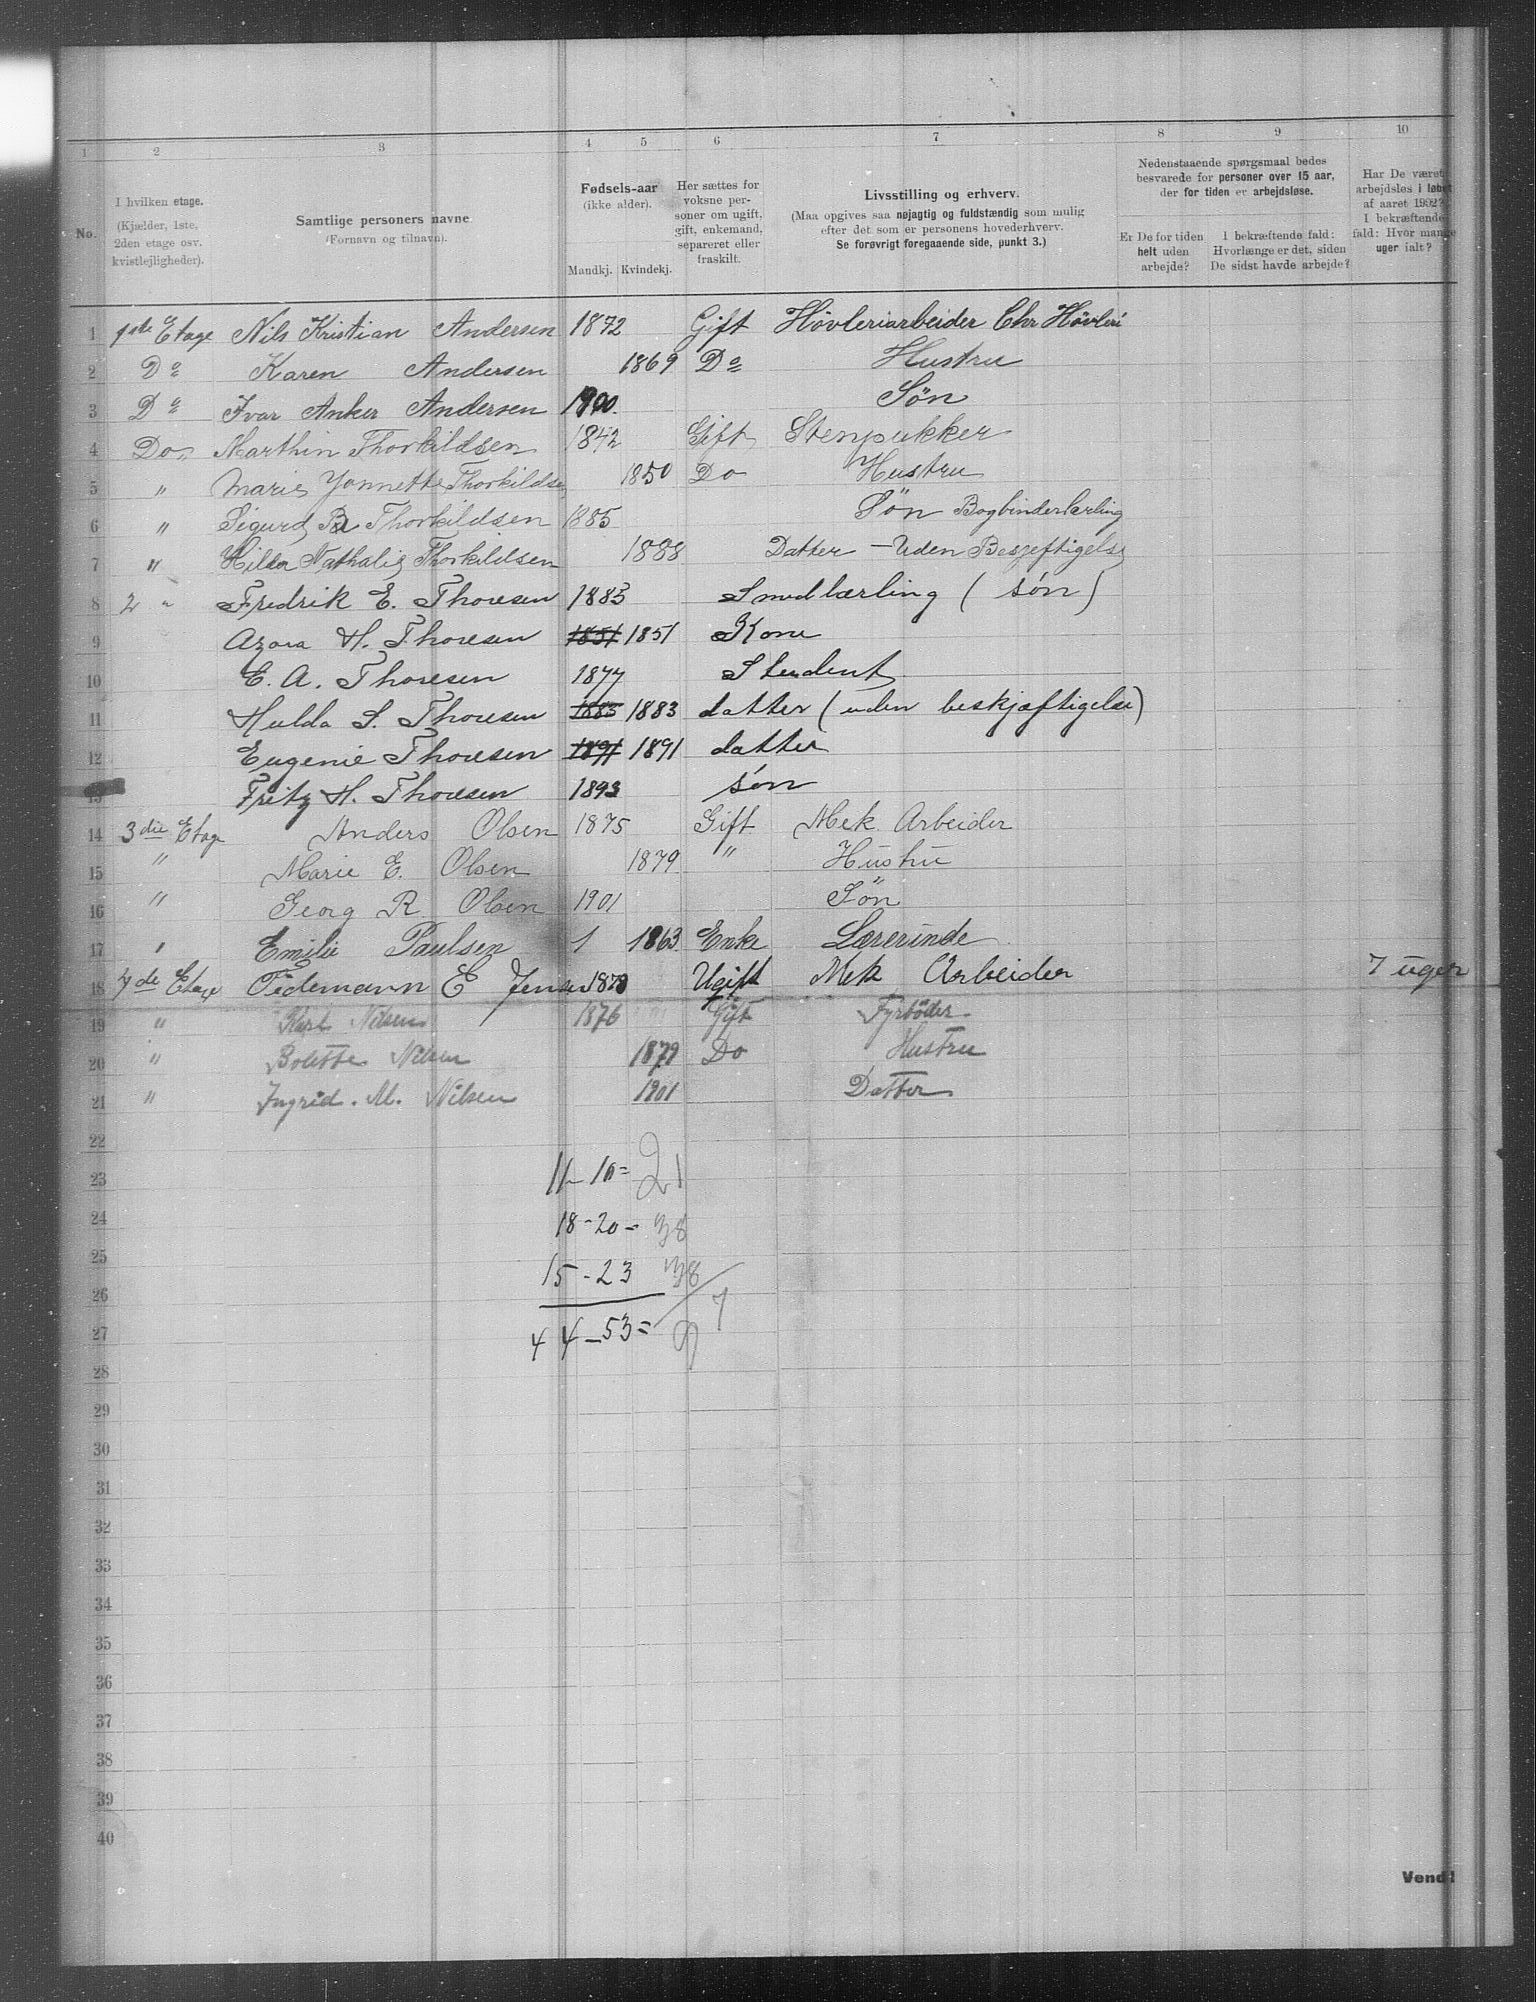 1 2 3 4 5 6 7 8 9 10
No.
I hvilken etage.
(Kjælder, 1ste,
2den etage osv.
kvistlejligheder).
Samtlige personers navne
(Fornavn og tilnavn).
Fødsels-aar
(ikke alder).
Mandkj. Kvindekj.
Her sættes for
voksne per-
soner om ugift,
gift, enkemand,
separeret eller
fraskilt.
Livsstilling og erhverv.
(Maa opgives saa nøjagtig og fuldstændig som mulig
efter det som er personens hovederhverv.
Se forøvrigt foregaaende side, punkt 3.)
Nedenstaaende spørgsmaal bedes
besvarede for personer over 15 aar,
der for tiden er arbejdsløse.
Er De for tiden
helt uden
arbejde?
I bekræftende fald:
Hvorlænge er det, siden
De sidst havde arbejde?
Har De været
arbejdsløs i løbet
af aaret 1902?
I bekræftende
fald: Hvor mange
uger ialt?
1 1ste Etage Nils Kristian Andersen 1872 Gift Hövleriarbeider Chr Hövleri
2 Do Karen Andersen 1869 Do Hustru
3 Do Ivar Anker Andersen 1900. Sön
4 Do, Marthin Thorkildsen 1842 Gift Stenpukker
5 " Marie Yonnette Thorkildse 1850 Do Hustru
6 " Sigurd Thorkildsen 1885 Sön Bogbinderlærling
7 " Hilda Nathalie Thorkildsen 1888 Datter - Uden Beszeftigelse
8 2 " Fredrik E. Thoresen 1885 Smedlærling ( søn )
9 Azora H. Thoresen 1851 1851 Kone
10 E. A. Thoresen 1877 Student
11 Hulda S. Thoresen 1883 1883 datter ( uden beskjæftigelse )
12 Eugenie Thoresen 1891 1891 datter
13 Fritz H. Thoresen 1893 søn
14 3die Etage Anders Olsen 1875 Gift Mek. Arbeider
15 " Marie E. Olsen 1879 " Hustru
16 " Georg R. Olsen 1901 Sön
17 " Emilie Paulsen 1 1863 Enke Lærerinde
18 4de Etage Tidemann E Jensen 1878 Ugift Mek Arbeider 7 uger
19 " Karl Nilsen 1876 Gift Fyrböder
20 " Bolette Nilsen 1879 Do Hustru
21 " Ingrid. M. Nilsen 1901 Datter
22
23 11-10= 21
24 18-20= 38
25 15-23 38
26
27 44-53= 97
28
29
30
31
32
33
34
35
36
37
38
39
40
Vend!